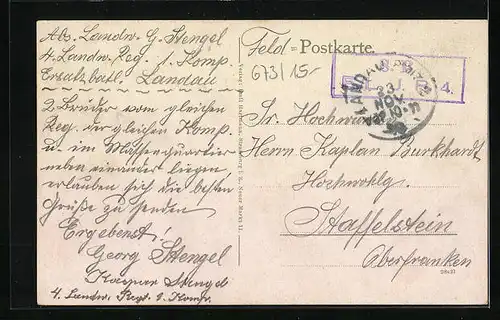 Abs. Landw. G. Stengel
4. Landw. Reg. 1. Komp.
Ersatzbatl. Landau
2 Brüder vom gleichen
Reg. der gleichen Komp.
u. im Massenquartier
neben einander liegen,
erlauben sich die besten
Grüße zu senden
Ergebenst!
Georg Stengel
Kaspar Stengel
4. Landw. Regt. 1. Komp.
Feld=Postkarte.
673/15-
LANDAU
23.
NOV.
4.
Sr. Hochwürden
Herrn Kaplan Burkhardt
Hochwohlg.
Staffelstein
Oberfranken